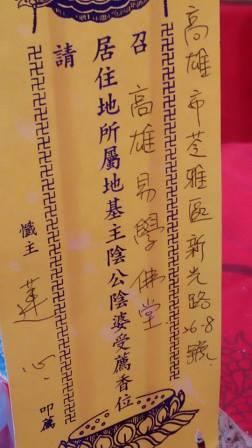 高雄市苓雅區新光路26-8號
召 高雄易學佛堂
請 居住地所屬地基主陰公陰婆受薦香位
懺主 蓮心 叩薦